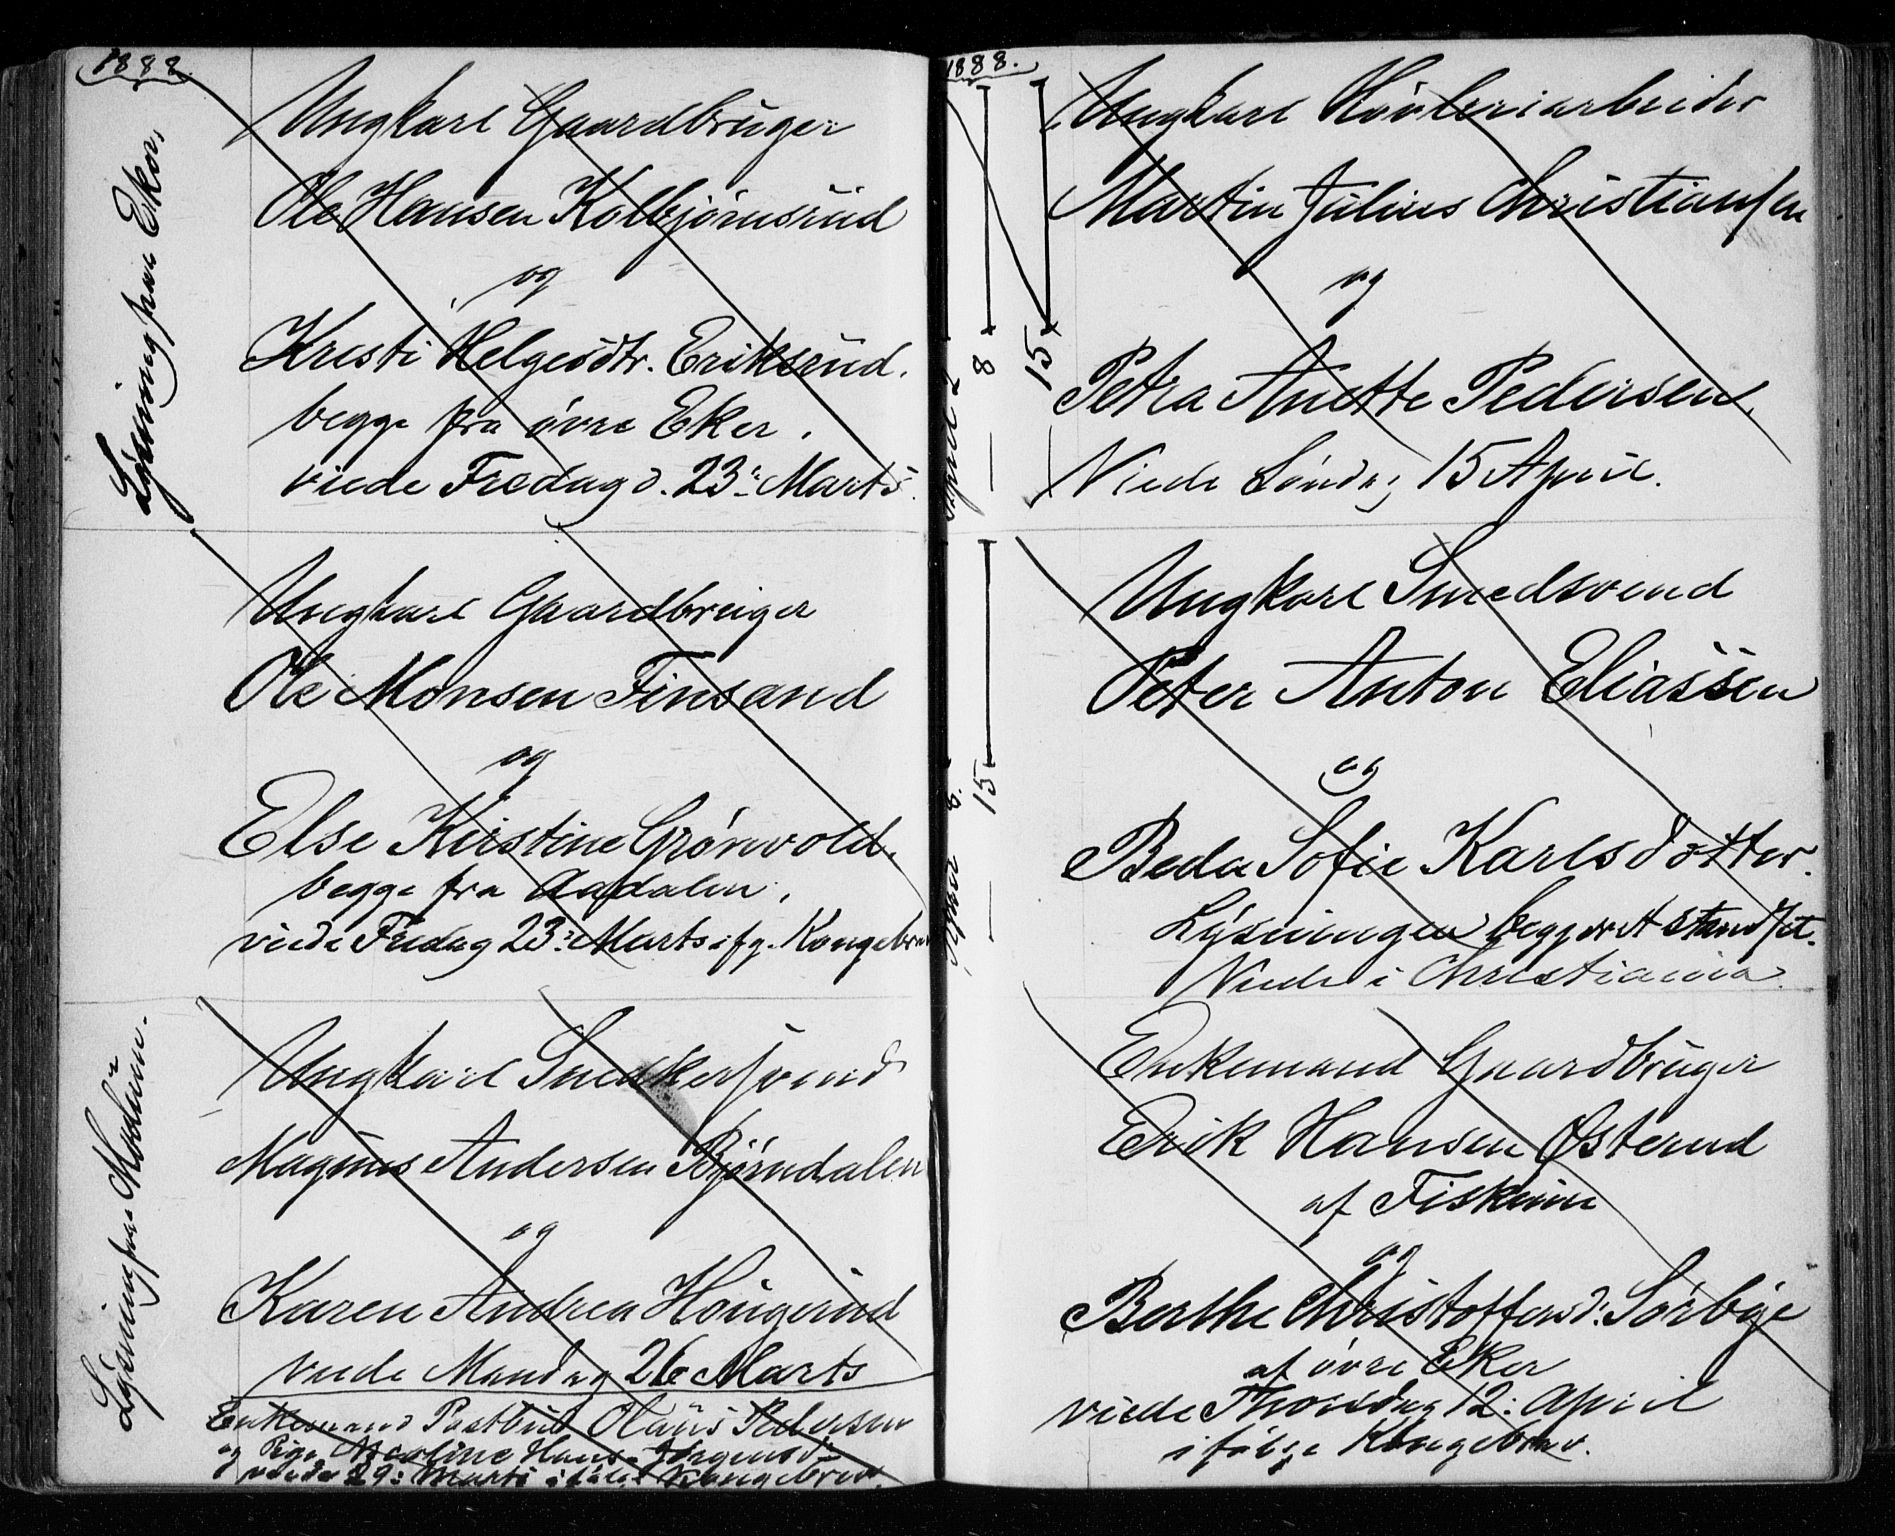 1888
Lysning fra Eker.
Ungkarl Gaardbruger
Ole Hansen Kolbjørnsrud
og
Kristi Helgesdtr. Eriksrud.
begge fra øvre Eker.
viede Fredag d. 23: Marts.
Ungkarl Gaardbruger
Ole Monsen Finsand
og
Else Kirstine Grønvold.
begge fra Aadalen.
viede Fredag 23: Marts ifg. Kongebrev
Lysning fra Modum.
Ungkarl Snedkersvend
Magnus Andersen Bjørndalen
og
Karen Andrea Hougerud
viede Mandag 26 Marts
Enkemand Postbud Olaus Pedersen
og Pige Maline Hans-Jørgensd:
viede 29: Marts ifølge Kongebrev.
1888.
April 2 — 8 — 15
Ungkarl Høvleriarbeider
Martin Julius Christiansen
og
Petra Anette Pedersen.
Viede Søndag 15 April.
April 8. — 15
Ungkarl Smedsvend
Peter Anton Eliassen
og
Beda Sofie Karlsdotter.
Lysningen begjæret standset.
Viede i Christiania.
Enkemand Gaardbruger
Erik Hansen Østerud
af Fiskum
og
Berthe Christoffersd: Sørbye
af øvre Eker
viede Thorsdag 12: April
ifølge Kongebrev.